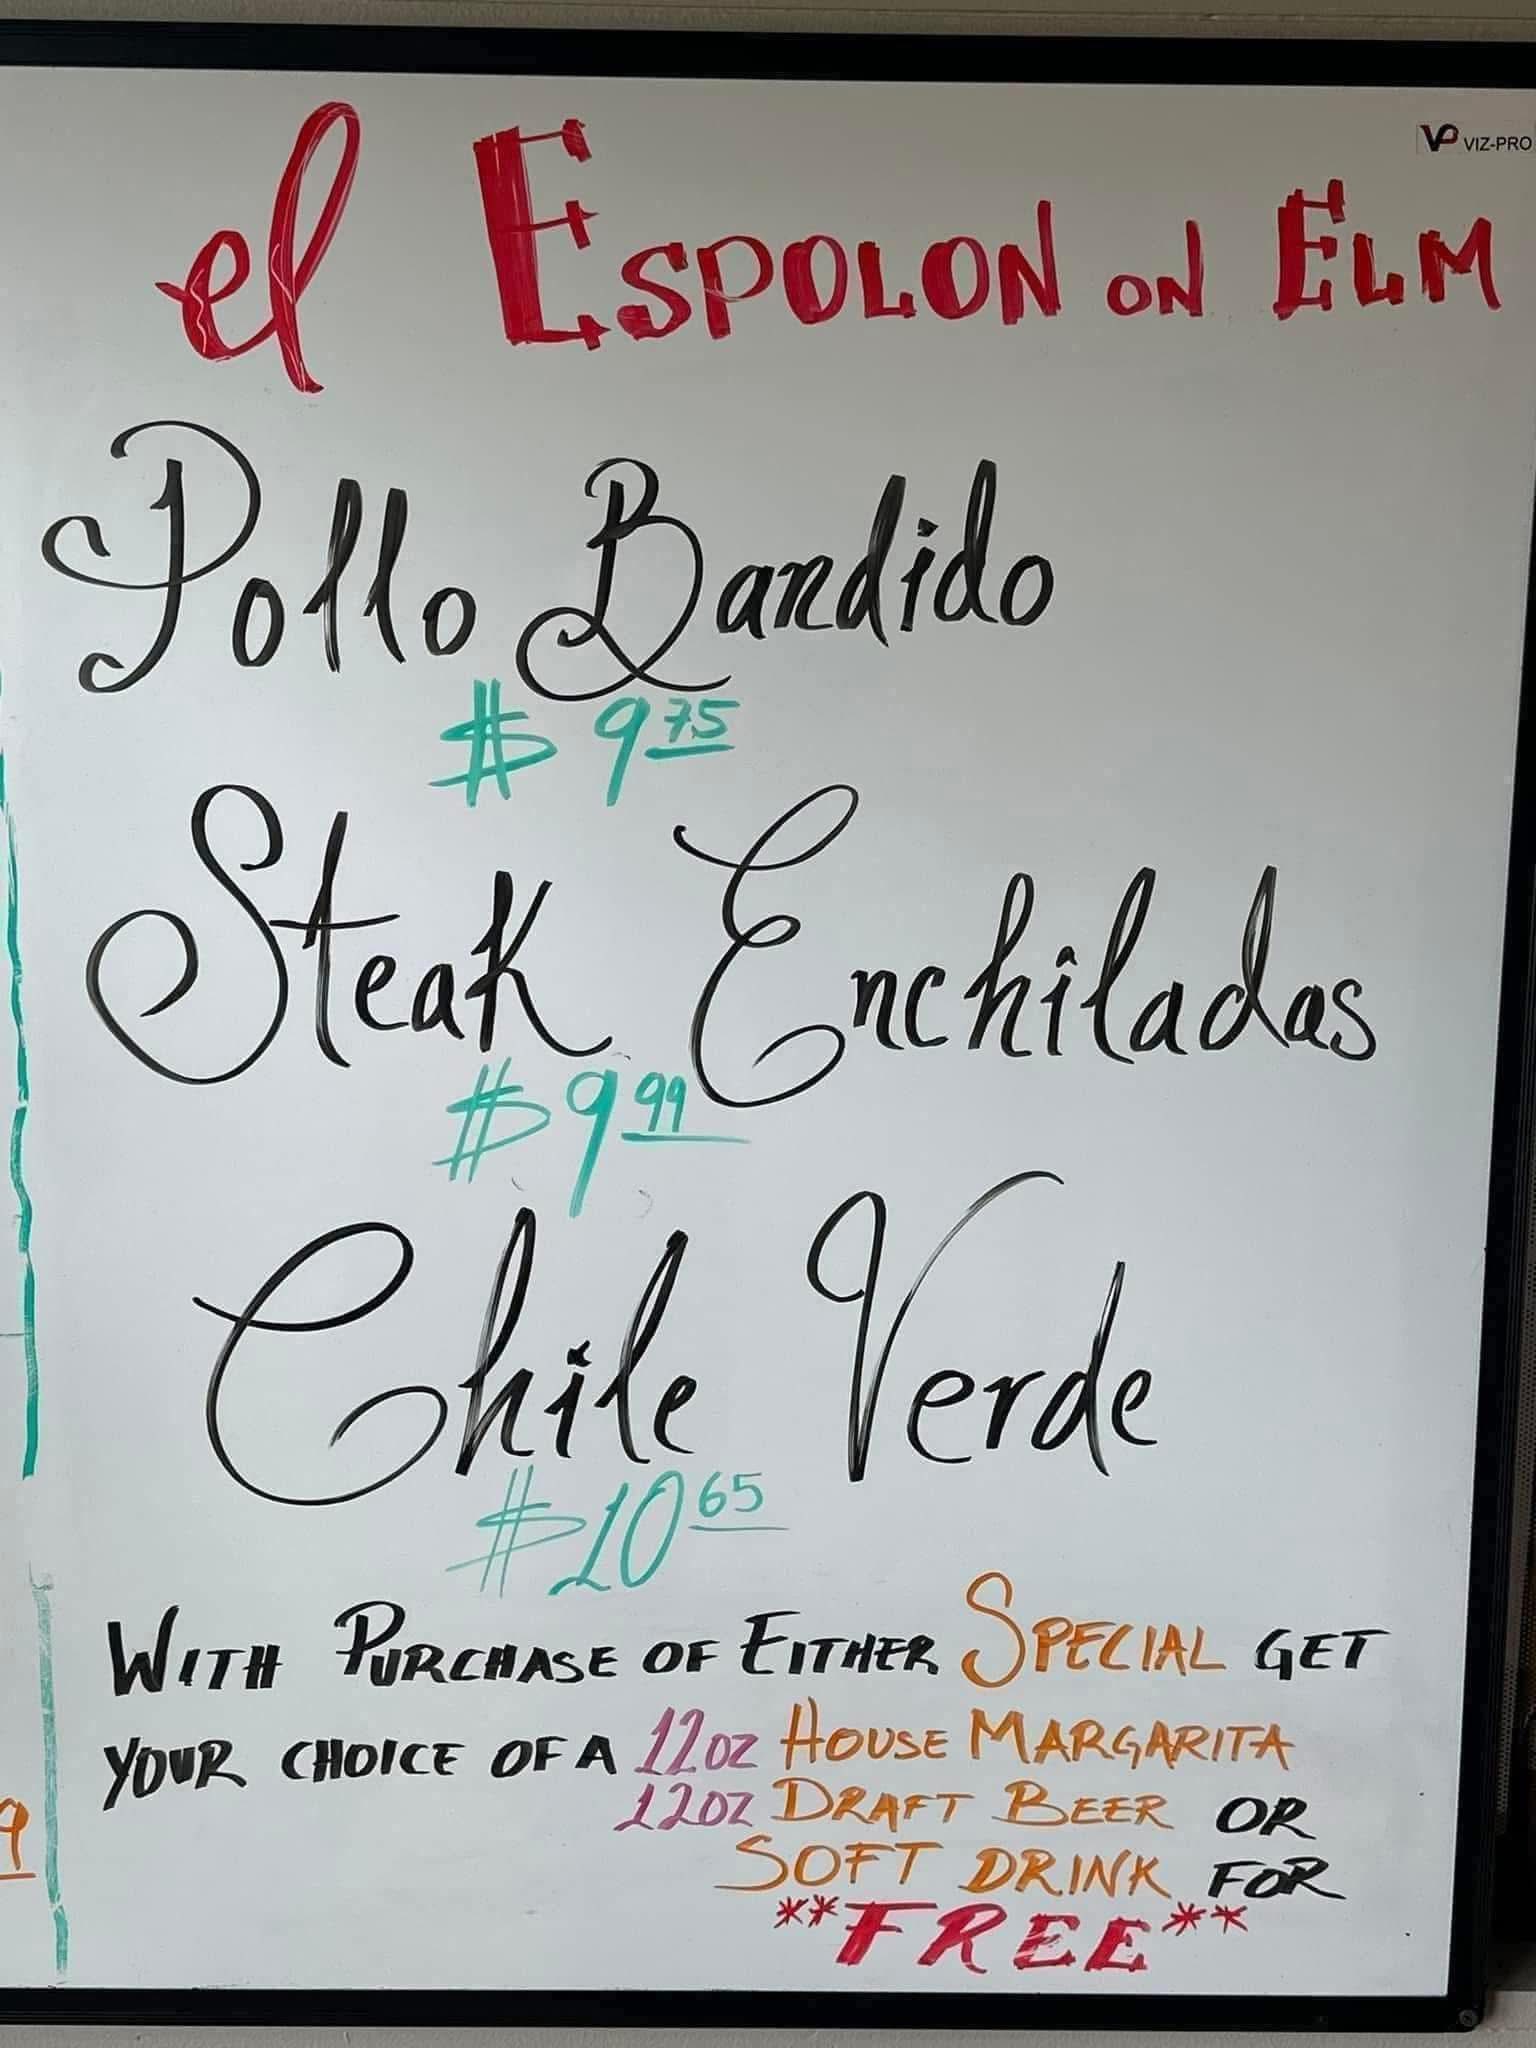 VP VIZ-PRO
el ESPOLON ON ELM
Pollo Bandido
$ 9 75
Steak Enchiladas
$ 9 99
Chile Verde
$ 10 65
WITH PURCHASE OF EITHER SPECIAL GET
YOUR CHOICE OF A 12oz HOUSE MARGARITA
12oz DRAFT BEER OR
SOFT DRINK FOR
**FREE**
9